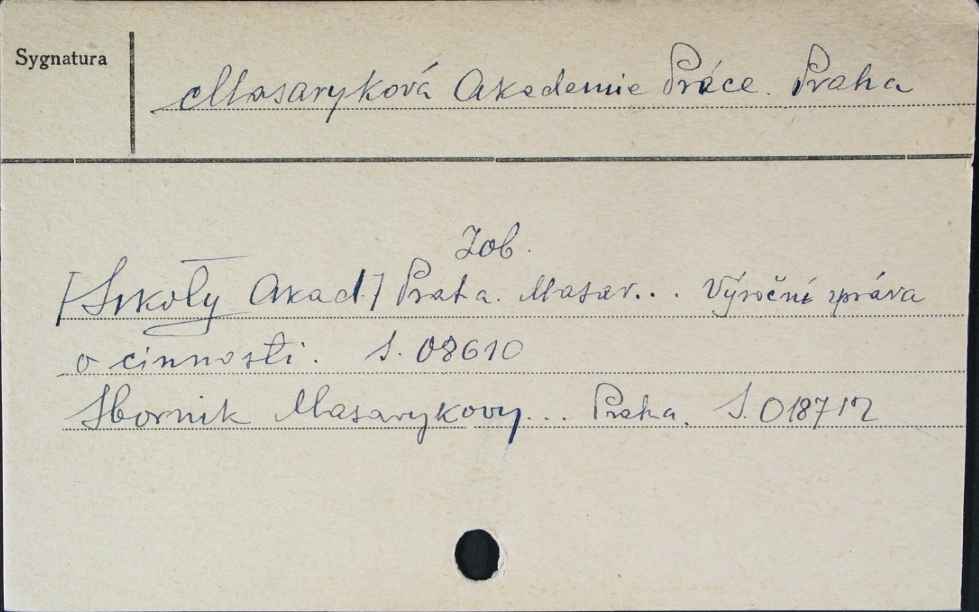 Sygnatura
Masaryková Akademie Práce. Praha
Zob.
[Szkoły Akad.] Praha. Masar... Výroční zpráva
o cinnosti. S. 08610
Sbornik Masarykovy... Praha. S. 018712